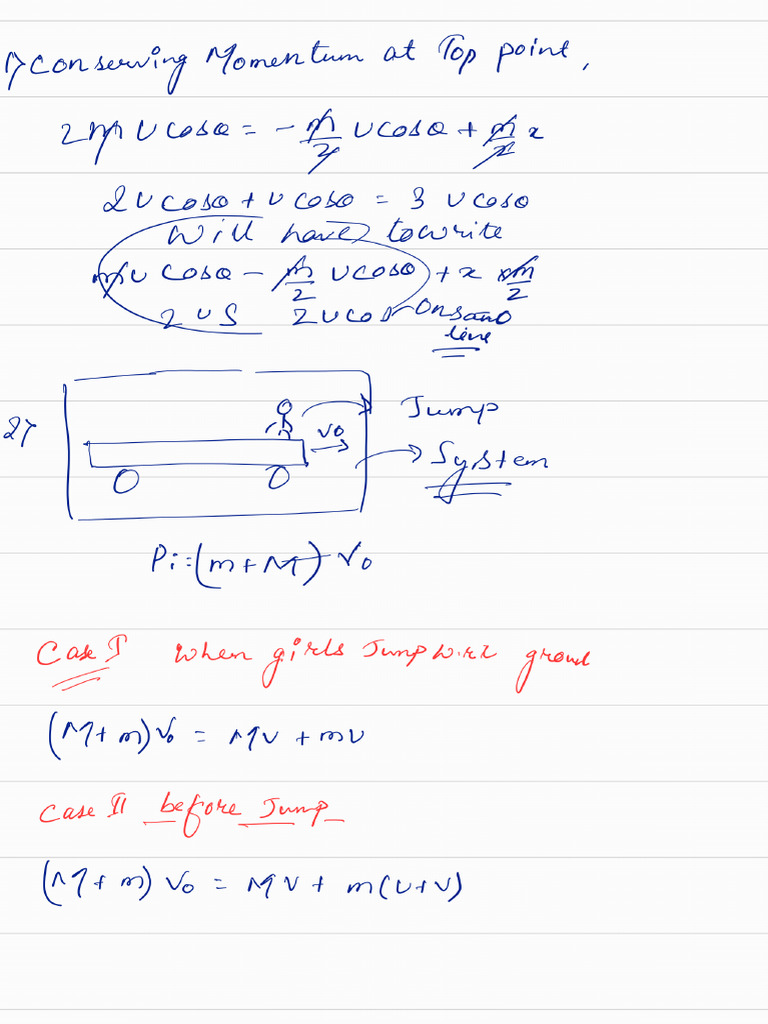 1) Conserving Momentum at Top point,
2m u cosθ = - m/2 u cosθ + m/2 x
2u cosθ + u cosθ = 3 u cosθ
Will have to write
mu cosθ - m/2 u cosθ + x m/2
2 u s 2u cos On same
line
2) v0 Jump
System
Pi = (m + M) V0
Case I When girls Jump w.r.t ground
(M + m) V0 = Mv + mu
Case II before Jump
(M + m) V0 = Mv + m(u + v)